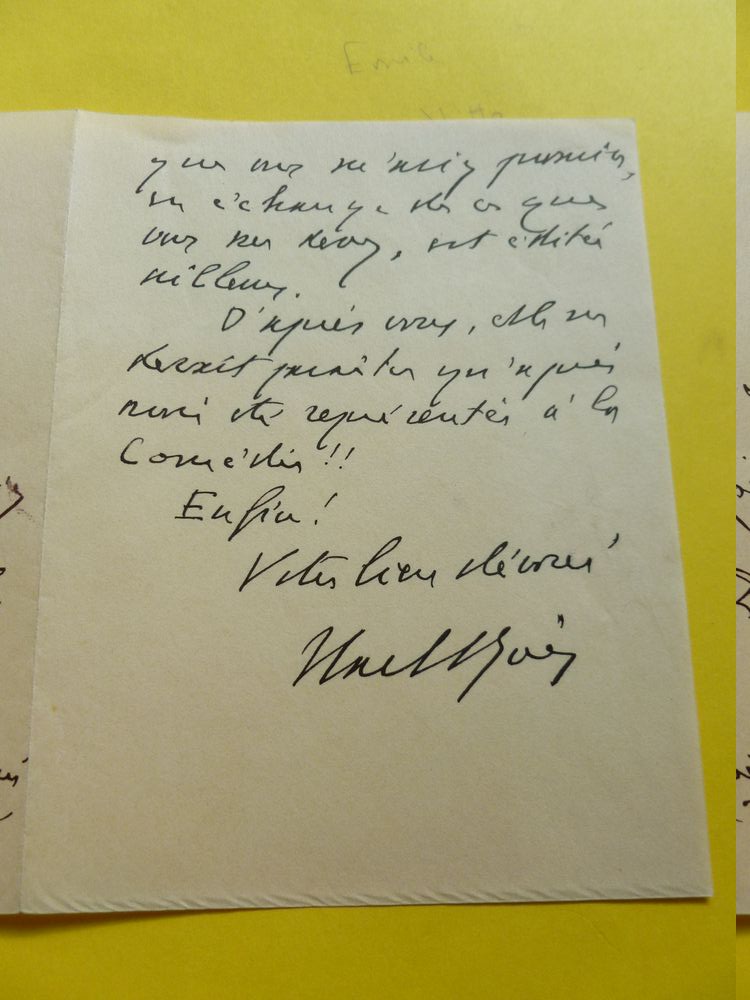 que vous m'avez promis,
en échange de ce que
vous me devez, est édité
ailleurs.
D'après vous, elle ne
devait paraître qu'après
avoir été représentée à la
Comédie !!
Enfin !
Votre bien dévoué
Emile